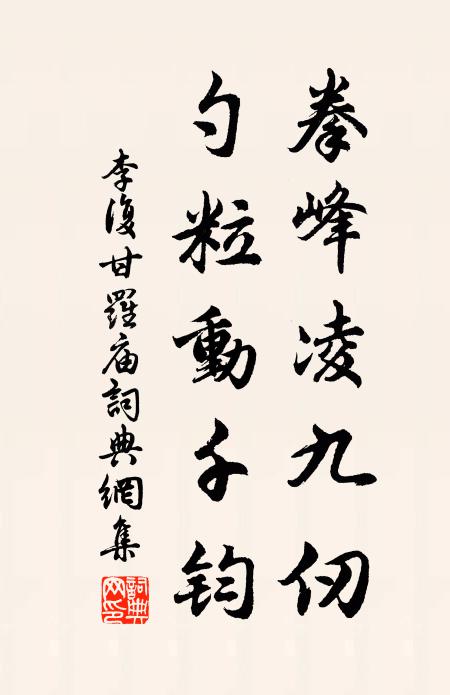 拳峰凌九仞
勺粒動千钧
李復甘羅庙詞典網集
詞典网印